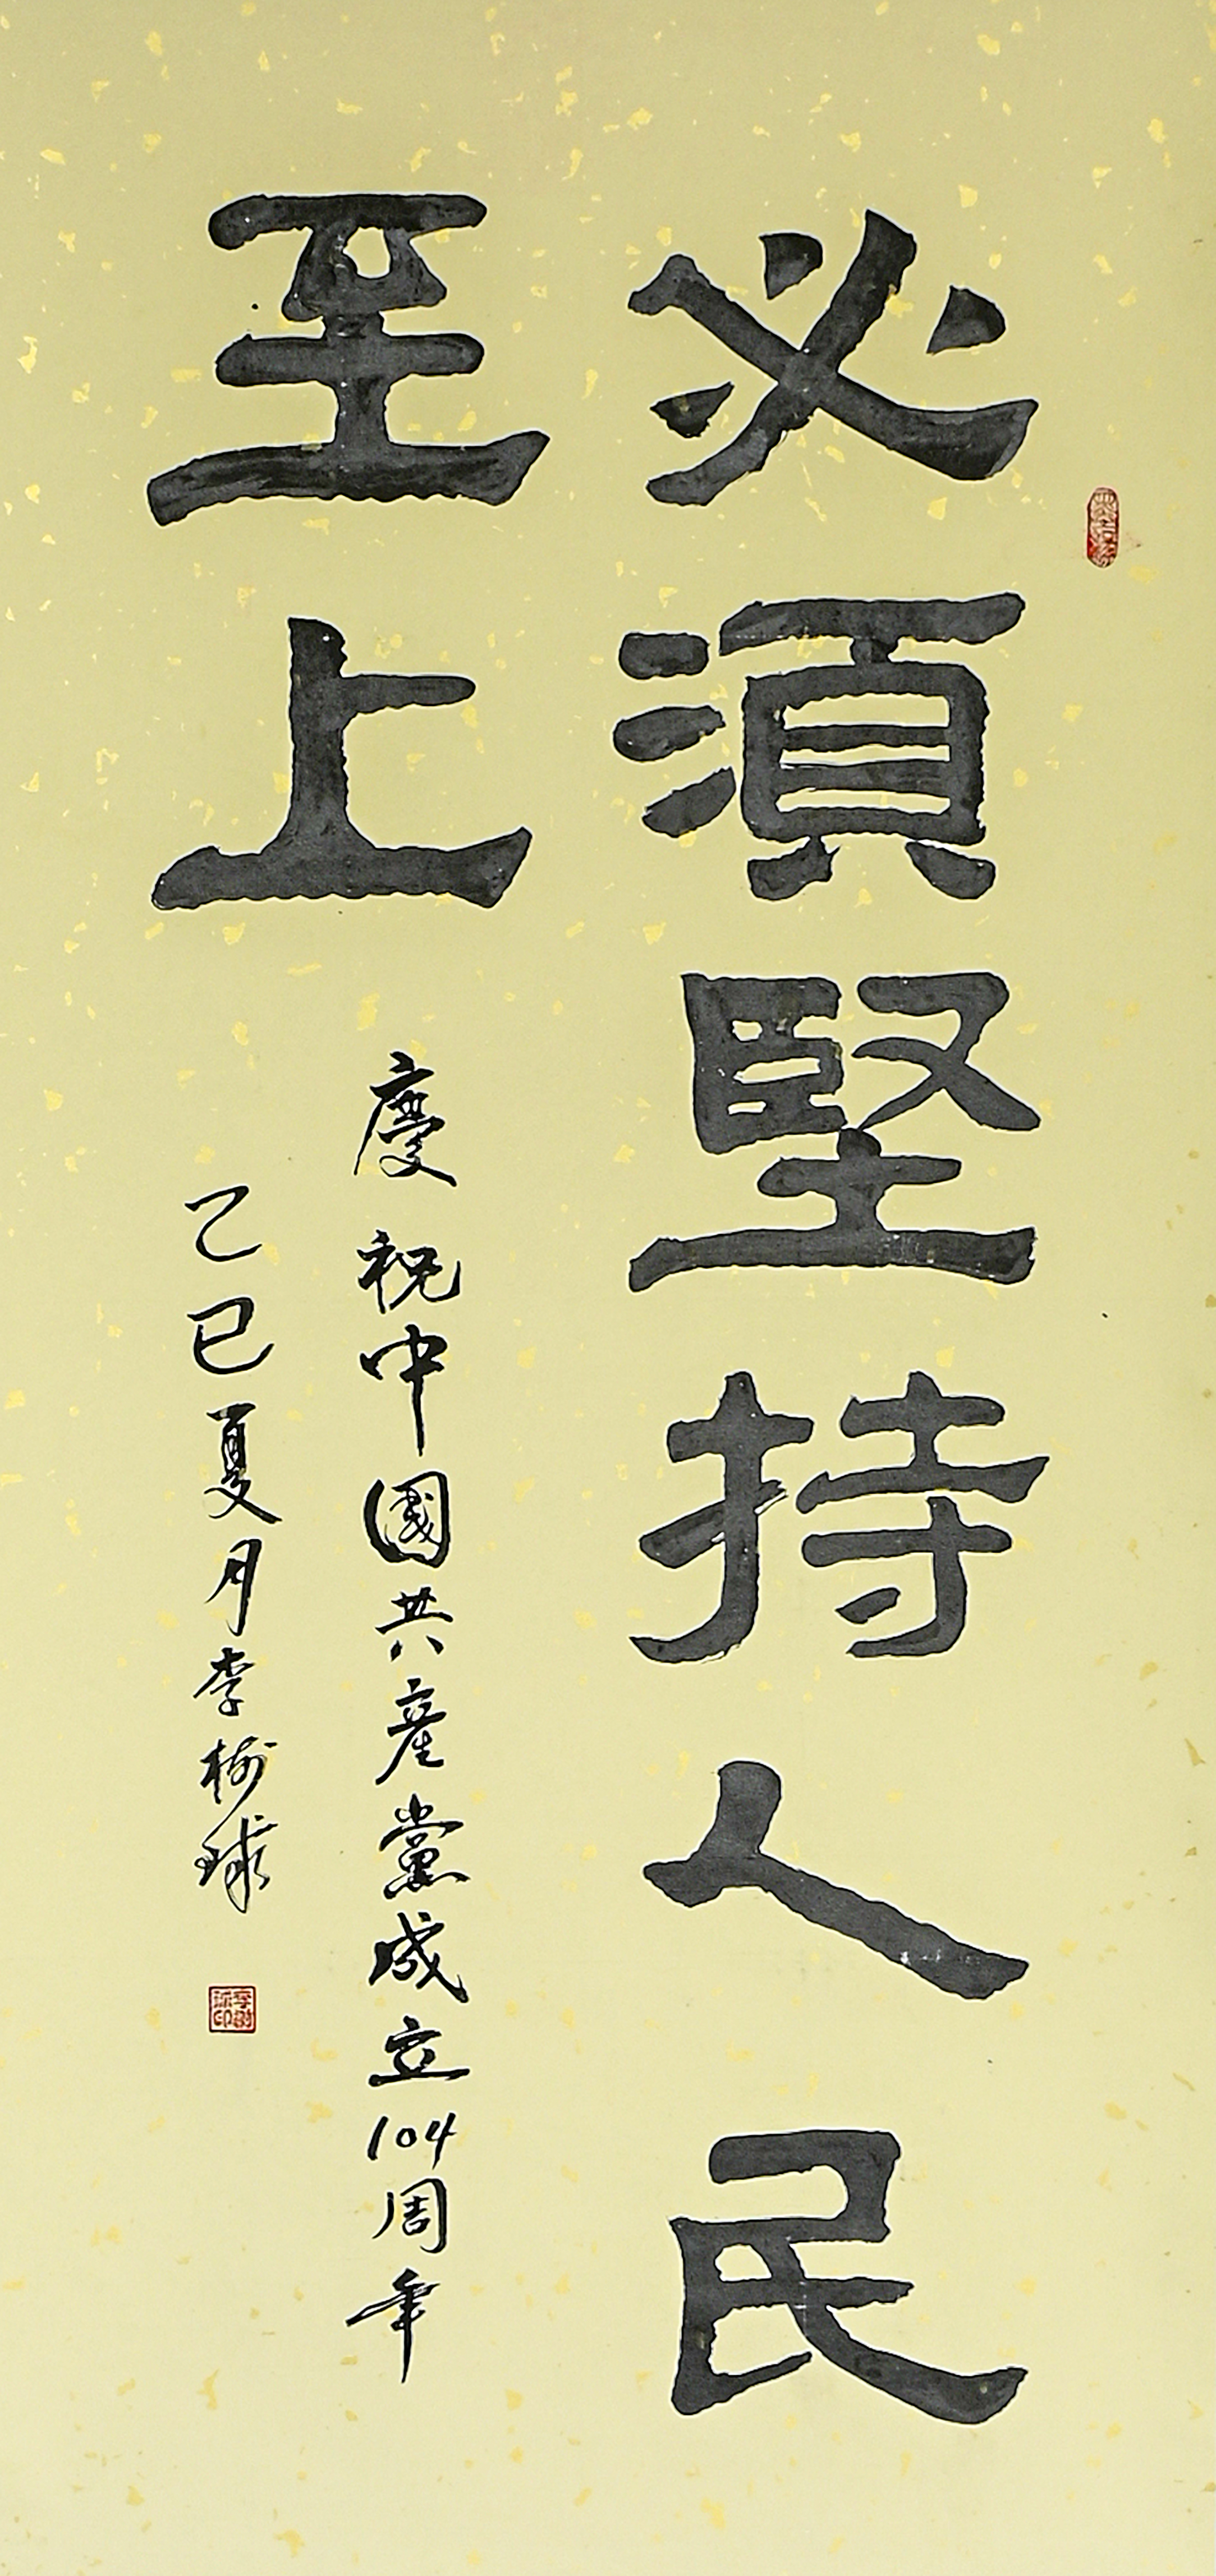 必須堅持人民
至上
慶祝中國共產黨成立104周年
乙巳夏月李樹球